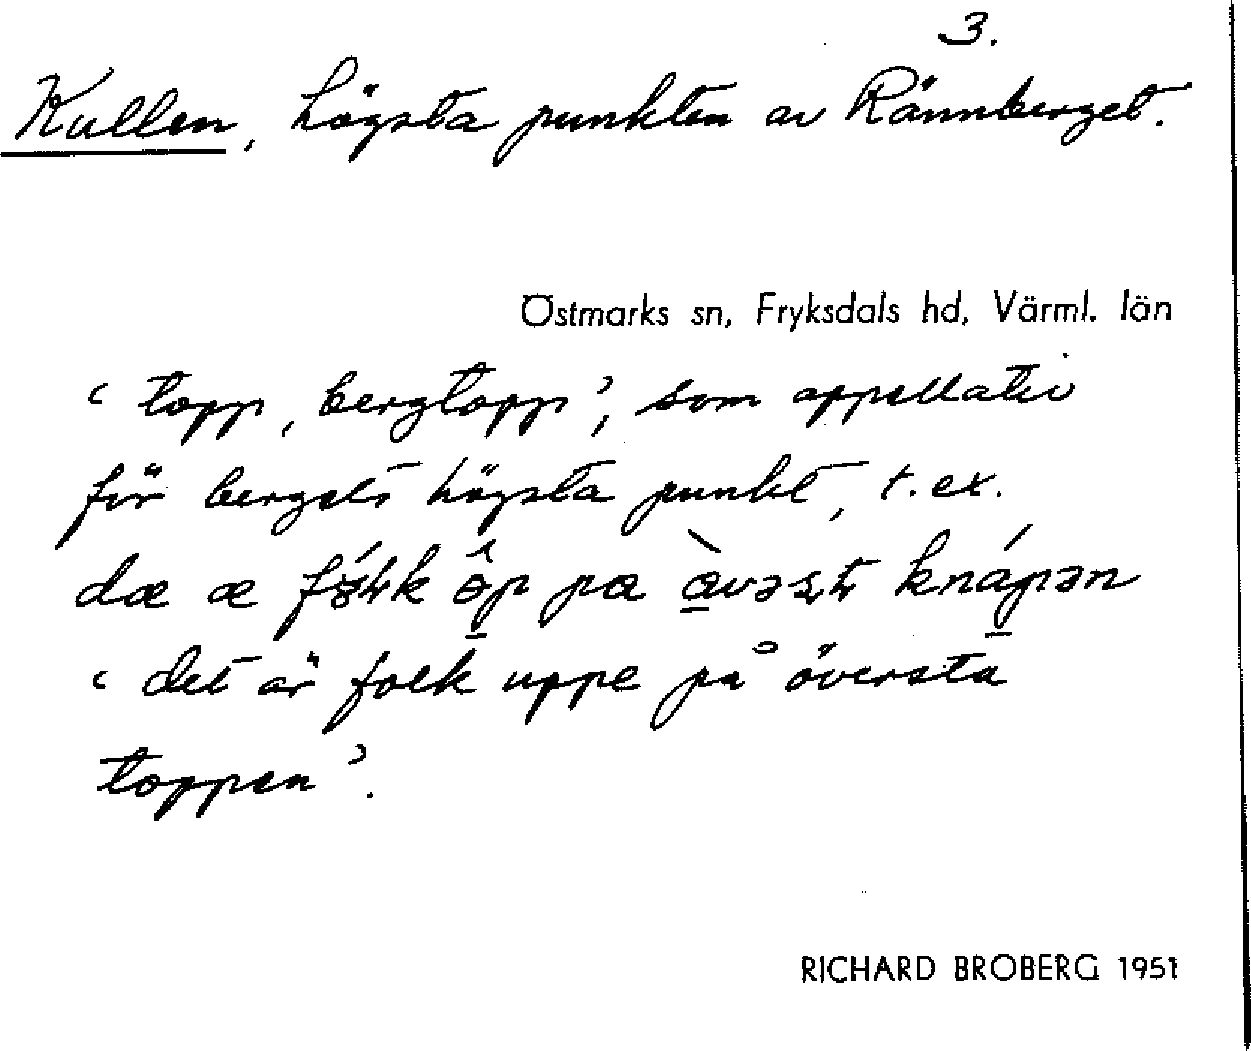 3.
Kullen, högsta punkten av Rännberget.
Östmarks sn, Fryksdals hd, Värml. län
‘topp, bergtopp’, som appellativ
för bergets högsta punkt, t. ex.
dæ æ
‘det är folk uppe på översta
toppen’.
RICHARD BROBERG 1951